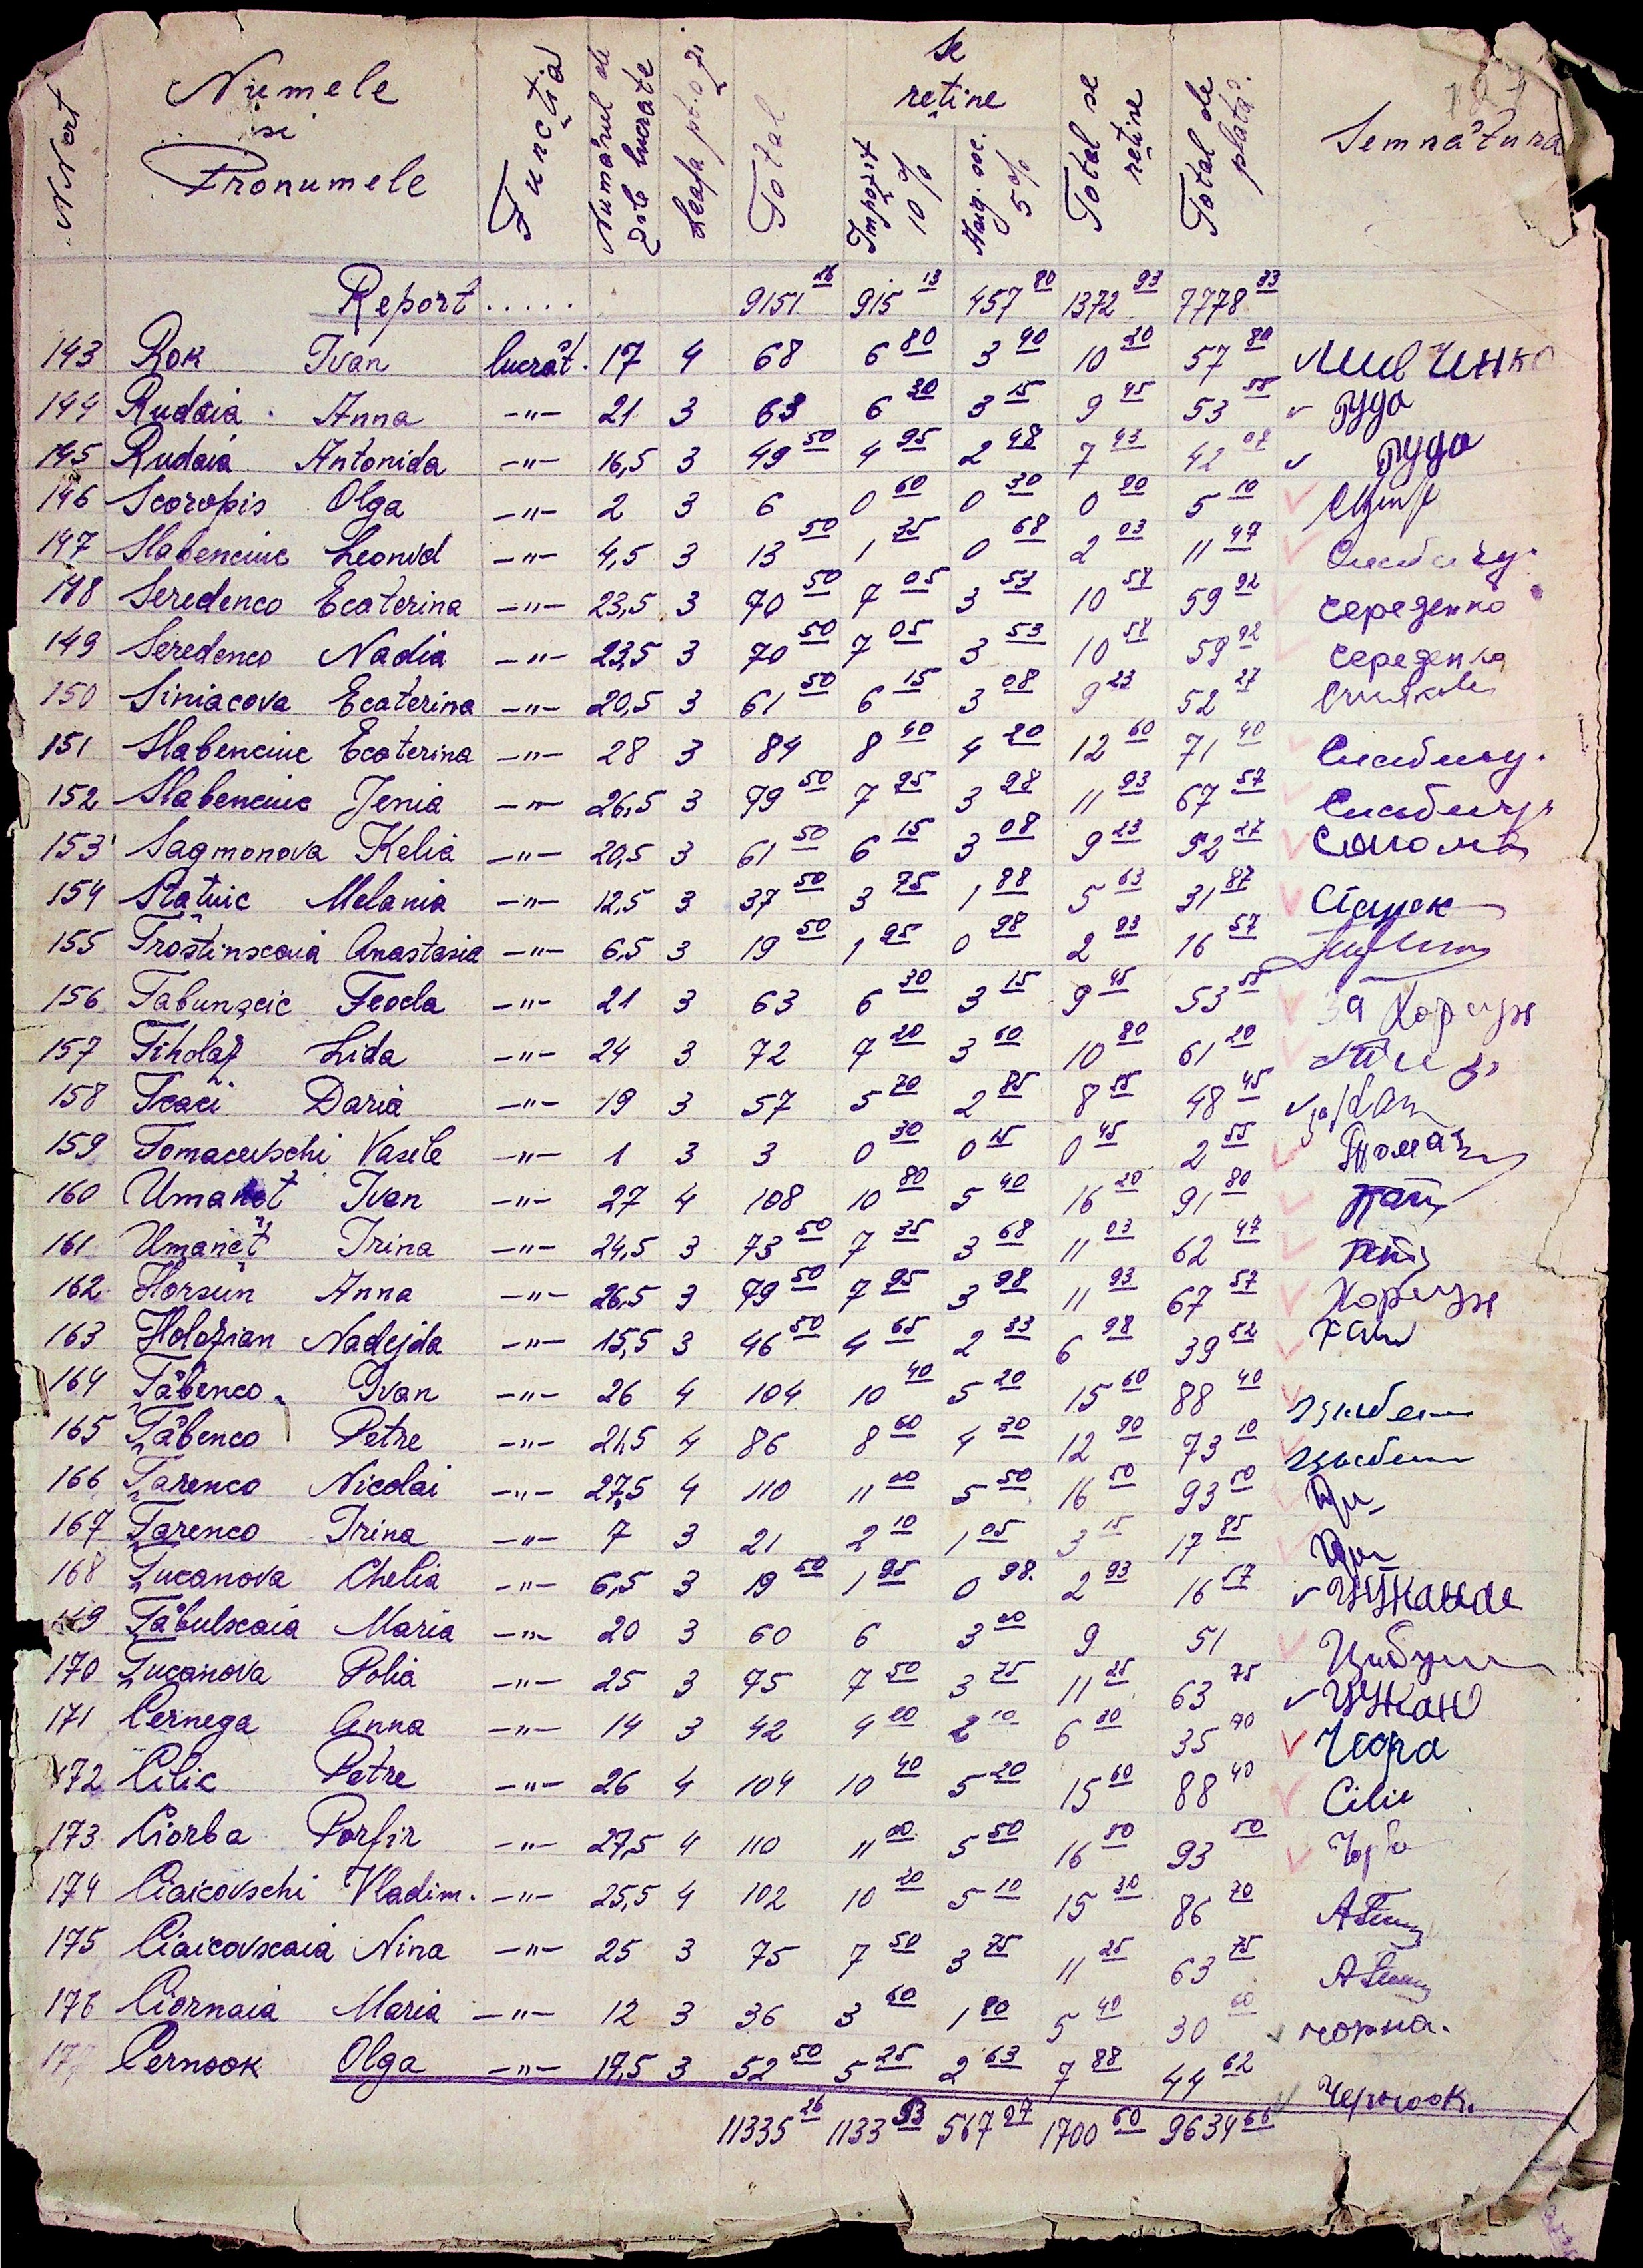 NNcrt Numele si Pronumele Funcţia Numărul de zile lucrate Leafa pt. o zi Total Se reţine Impozit 10% Asig. soc. 5% Total se reţine Total de plată Semnătura
Report ..... 9151 26 915 13 457 80 1372 93 7778 33
143 Rok Ivan lucrăt. 17 4 68 6 80 3 40 10 20 57 80
144 Rudaia Anna —"— 21 3 63 6 30 3 15 9 45 53 55 Руда
145 Rudaia Antonida —"— 16,5 3 49 50 4 95 2 48 7 43 42 07 Руда
146 Scoropis Olga —"— 2 3 6 0 60 0 30 0 90 5 10
147 Slabenciuc Leonid —"— 4,5 3 13 50 1 35 0 68 2 03 11 47
148 Seredenco Ecaterina —"— 23,5 3 70 50 7 05 3 53 10 58 59 92 Середенко
149 Seredenco Nadia —"— 23,5 3 70 50 7 05 3 53 10 58 59 92 Середенко
150 Siniacova Ecaterina —"— 20,5 3 61 50 6 15 3 08 9 23 52 27
151 Slabenciuc Ecaterina —"— 28 3 84 8 40 4 20 12 60 71 40
152 Slabenciuc Jenia —"— 26,5 3 79 50 7 95 3 98 11 93 67 57
153 Sagmonova Kelia —"— 20,5 3 61 50 6 15 3 08 9 23 52 27
154 Statnic Melania —"— 12,5 3 37 50 3 75 1 88 5 63 31 87
155 Trostinscaia Anastasia —"— 6,5 3 19 50 1 95 0 98 2 93 16 57
156 Tabunzcic Feocla —"— 21 3 63 6 30 3 15 9 45 53 55 За Хорсун
157 Tiholaz Lida —"— 24 3 72 7 20 3 60 10 80 61 20
158 Tcaci Daria —"— 19 3 57 5 70 2 85 8 55 48 45
159 Tomacevschi Vasile —"— 1 3 3 0 30 0 15 0 45 2 55
160 Umaneţ Ivan —"— 27 4 108 10 80 5 40 16 20 91 80
161 Umaneţ Irina —"— 24,5 3 73 50 7 35 3 68 11 03 62 47
162 Horsun Anna —"— 26,5 3 79 50 7 95 3 98 11 93 67 57 Хорсун
163 Holozian Nadejda —"— 15,5 3 46 50 4 65 2 33 6 98 39 52
164 Ţăbenco Ivan —"— 26 4 104 10 40 5 20 15 60 88 40
165 Ţăbenco Petre —"— 21,5 4 86 8 60 4 30 12 90 73 10
166 Ţarenco Nicolai —"— 27,5 4 110 11 00 5 50 16 50 93 50
167 Ţarenco Irina —"— 7 3 21 2 10 1 05 3 15 17 85
168 Ţucanova Chelia —"— 6,5 3 19 50 1 95 0 98 2 93 16 57
169 Ţăbulscaia Maria —"— 20 3 60 6 3 00 9 51
170 Ţucanova Polia —"— 25 3 75 7 50 3 75 11 25 63 75
171 Cernega Anna —"— 14 3 42 4 20 2 10 6 30 35 70
172 Cilic Petre —"— 26 4 104 10 40 5 20 15 60 88 40 Cilic
173 Ciorba Porfir —"— 27,5 4 110 11 00 5 50 16 50 93 50
174 Ciaicovschi Vladim. —"— 25,5 4 102 10 20 5 10 15 30 86 70
175 Ciaicovscaia Nina —"— 25 3 75 7 50 3 75 11 25 63 75
176 Ciornaia Maria —"— 12 3 36 3 60 1 80 5 40 30 60 чорна.
177 Cernook Olga —"— 17,5 3 52 50 5 25 2 63 7 88 44 62 Черноок.
11335 26 1133 53 567 07 1700 60 9634 66